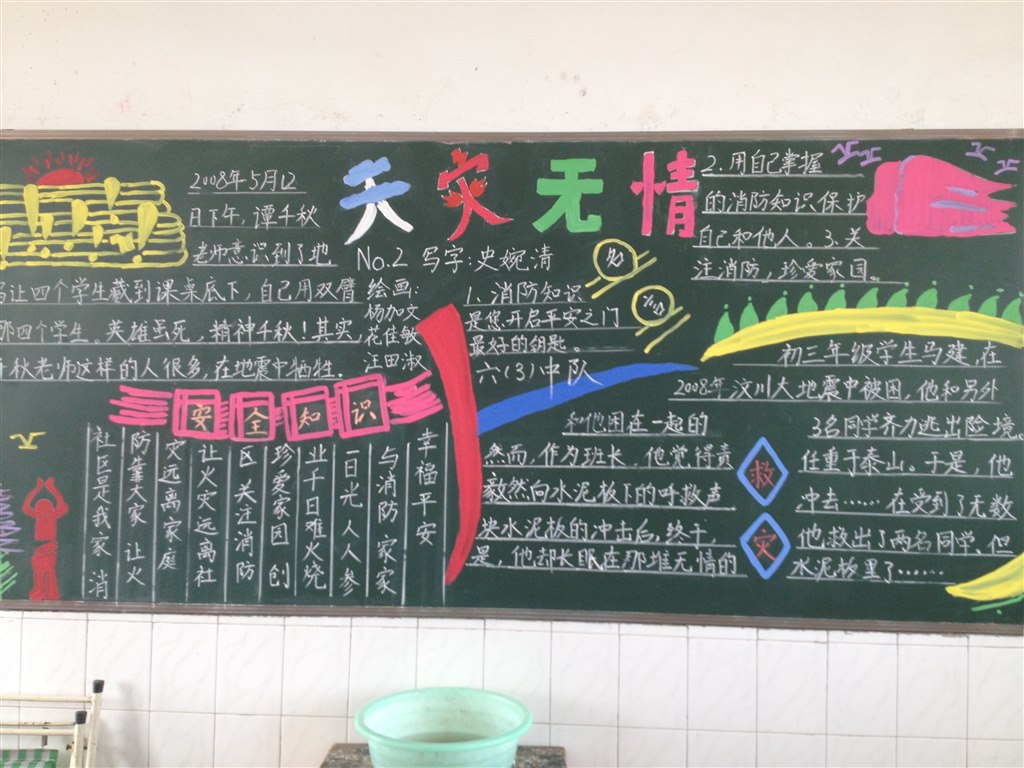 天灾无情
2008年5月12
日下午，谭千秋
老师意识到了地
让四个学生藏到课桌底下，自己用双臂
那四个学生。英雄虽死，精神千秋！其实，
秋老师这样的人很多，在地震中牺牲。
No.2 写字：史婉清
绘画：
杨加文
花佳敏
汪田淑
1. 消防知识
是您开启平安之门
最好的钥匙。
六(3)中队
2. 用自己掌握
的消防知识保护
自己和他人。3. 关
注消防，珍爱家园。
安全知识
社区是我家 消
防靠大家 让火
灾远离家庭
让火灾远离社
区 关注消防
珍爱家园 创
业千日难火烧
一日光人人参
与消防 家家
幸福平安
初三年级学生马建，在
2008年汶川大地震中被困，他和另外
3名同学齐力逃出险境。
和他困在一起的
然而，作为班长，他觉得责
任重于泰山。于是，他
毅然向水泥板下的呼救声
冲去……在受到了无数
块水泥板的冲击后，终于，
他救出了两名同学。但
是，他却长眠在那堆无情的
水泥板里了……
救
灾